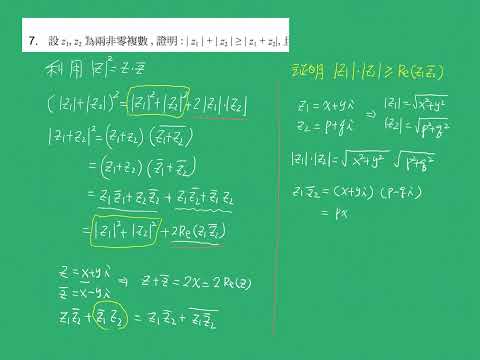 7. 設 z₁, z₂ 為兩非零複數，證明：| z₁ | + | z₂ | ≥ | z₁ + z₂|,
利用 |z|² = z · z̅
(|z₁|+|z₂|)² = |z₁|²+|z₂|²+2|z₁|·|z₂|
|z₁+z₂|² = (z₁+z₂) (\overline{z₁+z₂})
= (z₁+z₂) (z̅₁+z̅₂)
= z₁z̅₁+z₂z̅₂+z₁z̅₂+z̅₁z₂
= |z₁|²+|z₂|²+2Re(z₁z̅₂)
z = x+yi
z̅ = x−yi
⇒ z+z̅ = 2x = 2Re(z)
z₁z̅₂+z̅₁z₂ = z₁z̅₂+\overline{z₁z̅₂}
證明 |z₁|·|z₂| ≥ Re(z₁z̅₂)
z₁ = x+yi ⇒ |z₁| = √(x²+y²)
z₂ = p+qi |z₂| = √(p²+q²)
|z₁|·|z₂| = √(x²+y²) √(p²+q²)
z₁z̅₂ = (x+yi) (p−qi)
= px